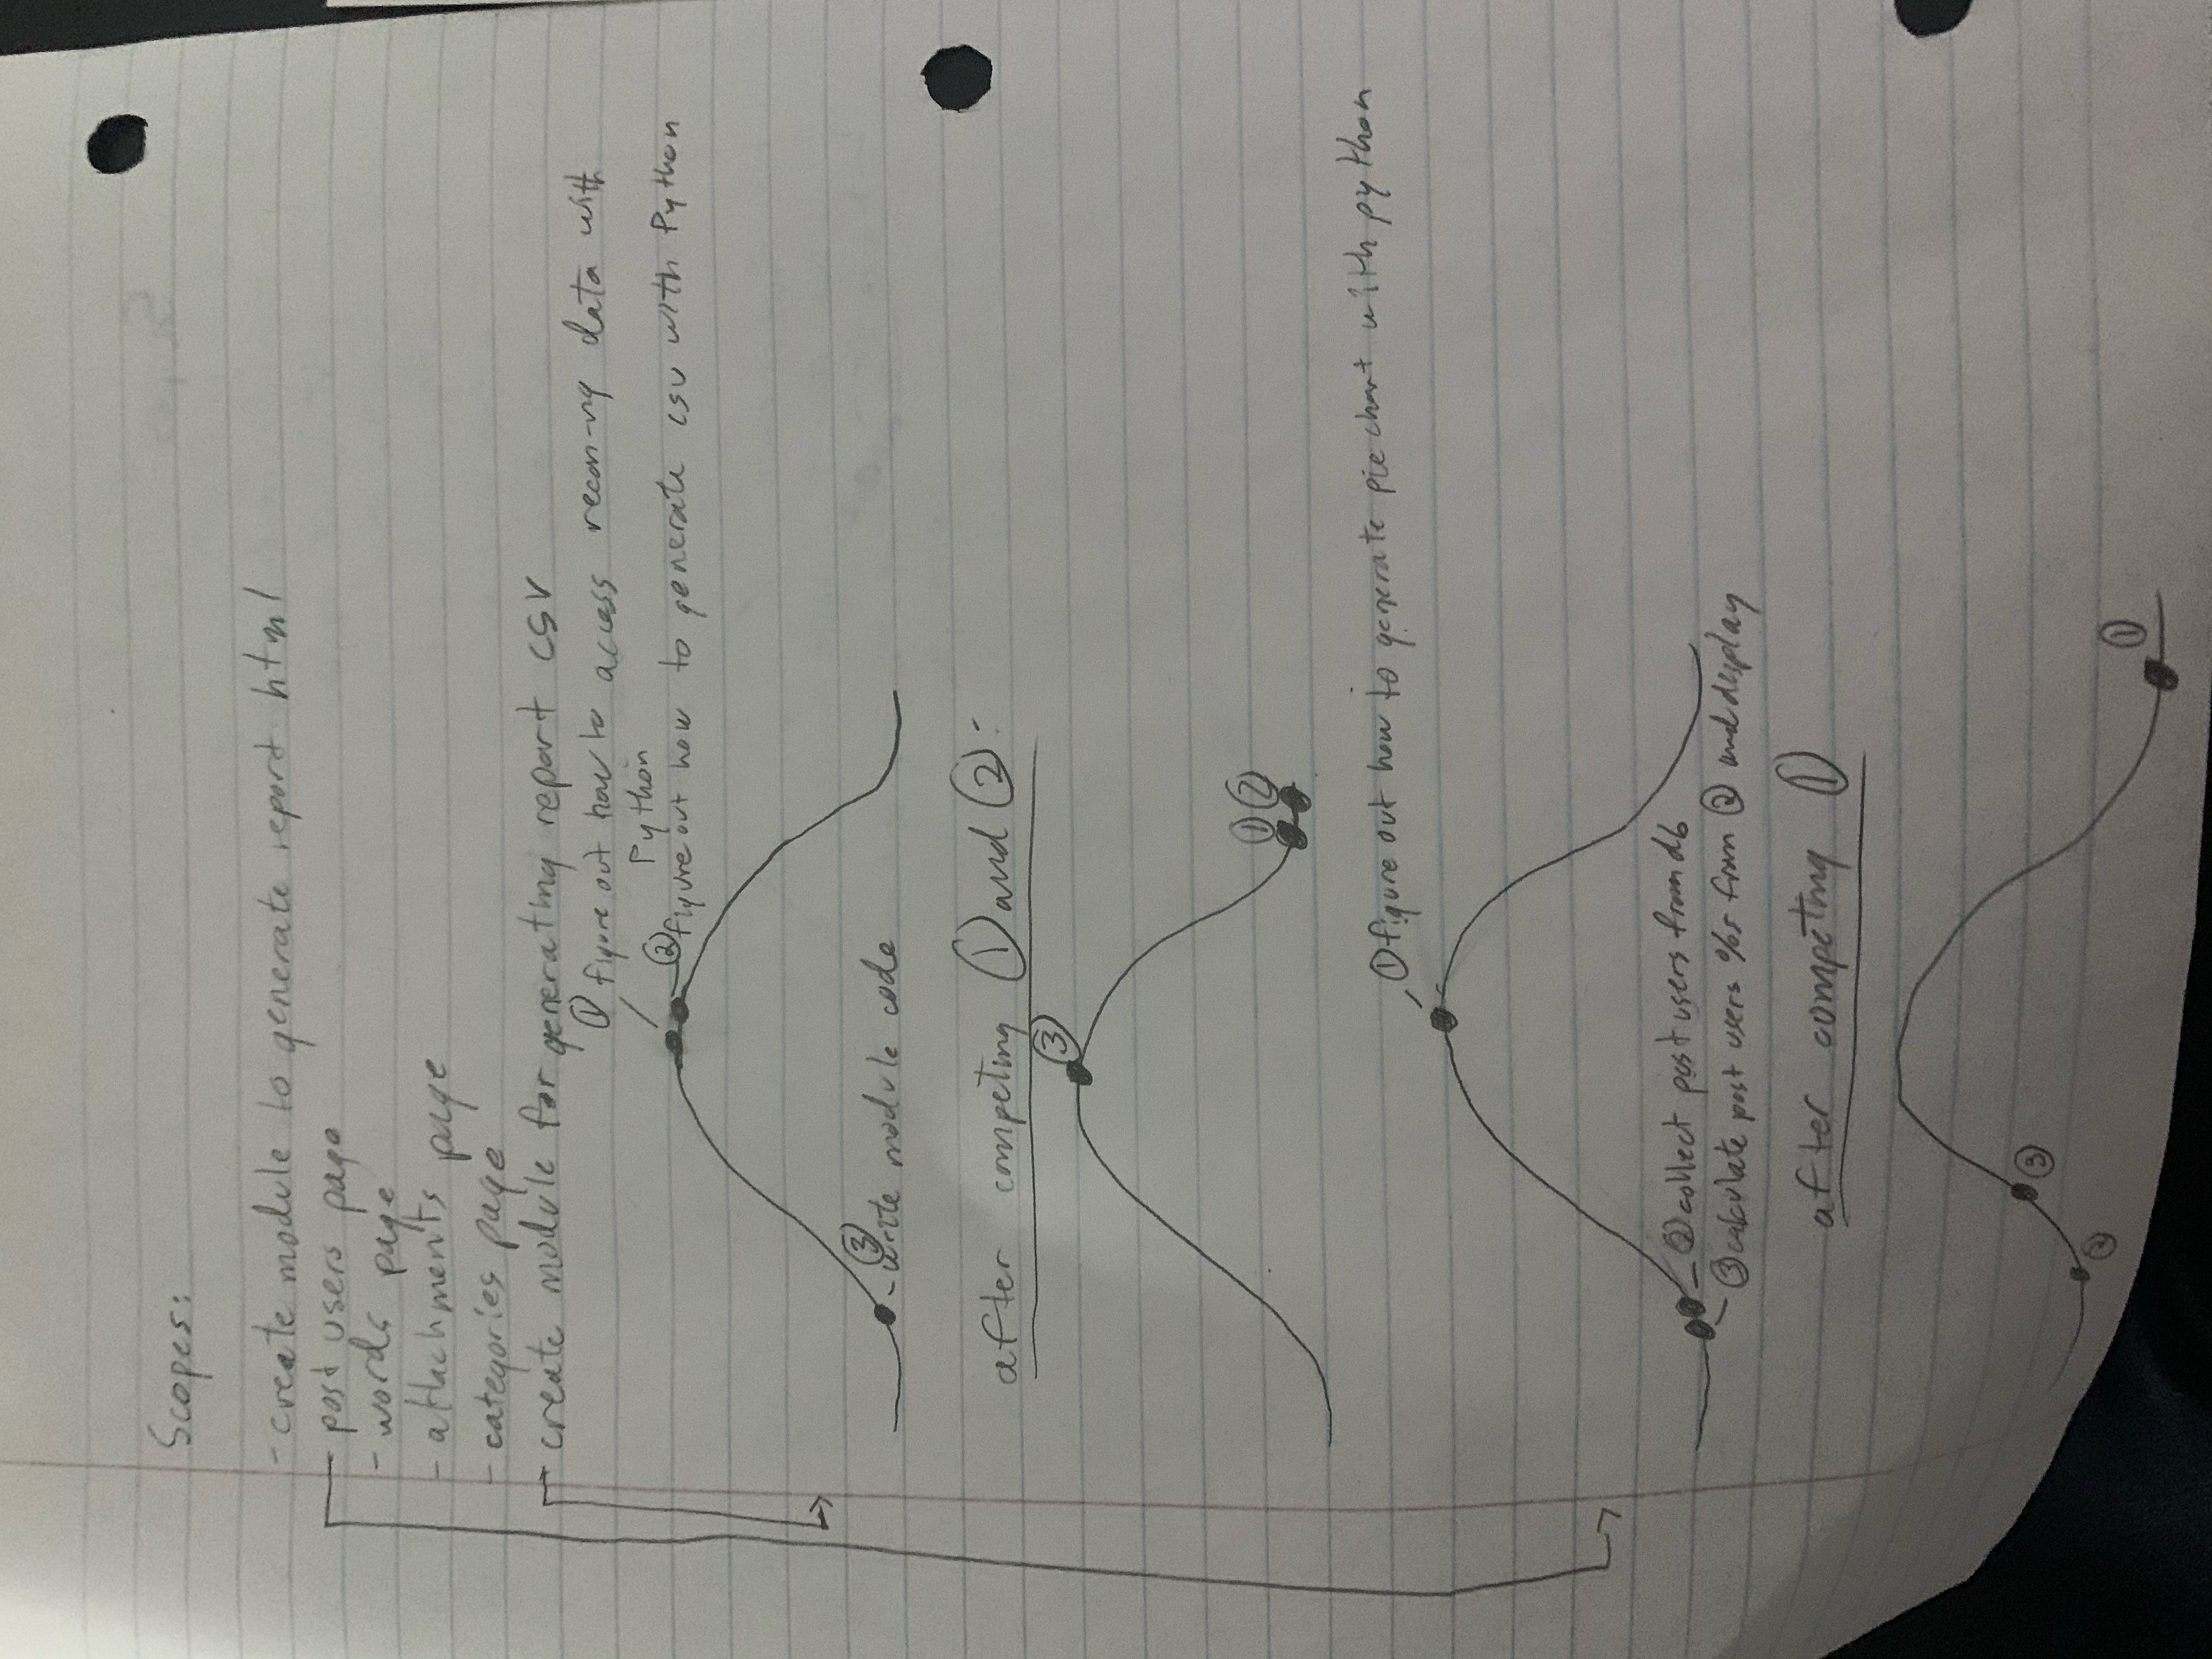 Scopes:
- create module to generate report html
- post users page
- words page
- attachments page
- categories page
- create module for generating report csv
① figure out how to access recon-ng data with
Python
② figure out how to generate csv with Python
③
- write module code
after competing ① and ②:
③
① ②
① figure out how to generate pie chart with python
② collect post users from db
③ calculate post users %s from ② and display
after competing ①
③
②
①